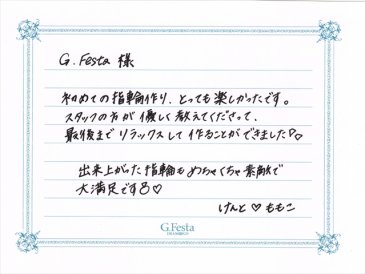 G.Festa 様
初めての指輪作り、とっても楽しかったです。
スタッフの方が優しく教えてくださって、
最後までリラックスして作ることができました♡♡
出来上がった指輪もめちゃくちゃ素敵で
大満足です♡
けんと ♡ ももこ
G.Festa